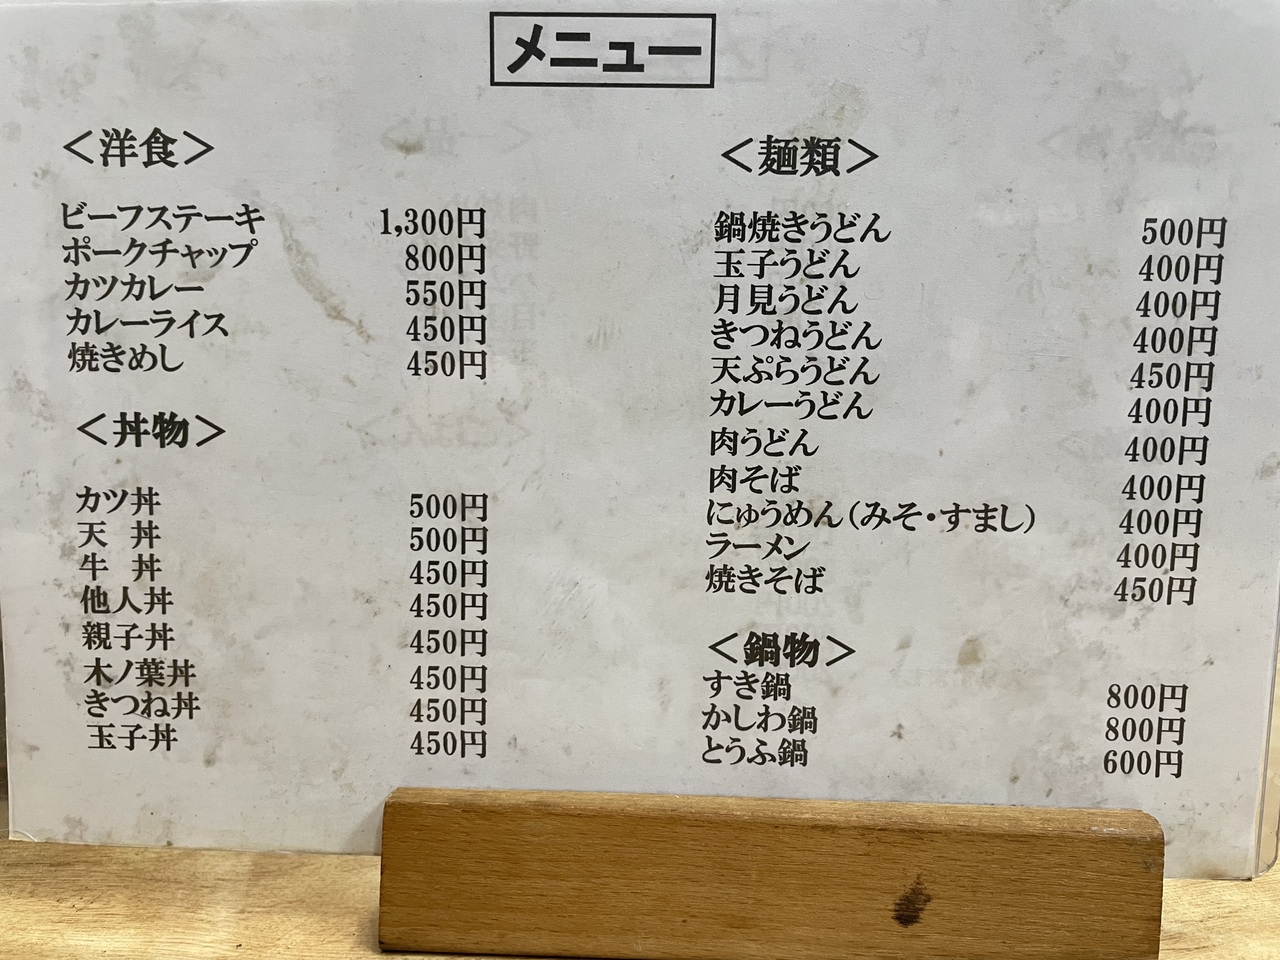 メニュー
＜洋食＞
ビーフステーキ 1,300円
ポークチャップ 800円
カツカレー 550円
カレーライス 450円
焼きめし 450円
＜丼物＞
カツ丼 500円
天　丼 500円
牛　丼 450円
他人丼 450円
親子丼 450円
木ノ葉丼 450円
きつね丼 450円
玉子丼 450円
＜麺類＞
鍋焼きうどん 500円
玉子うどん 400円
月見うどん 400円
きつねうどん 400円
天ぷらうどん 450円
カレーうどん 400円
肉うどん 400円
肉そば 400円
にゅうめん（みそ・すまし） 400円
ラーメン 400円
焼きそば 450円
＜鍋物＞
すき鍋 800円
かしわ鍋 800円
とうふ鍋 600円